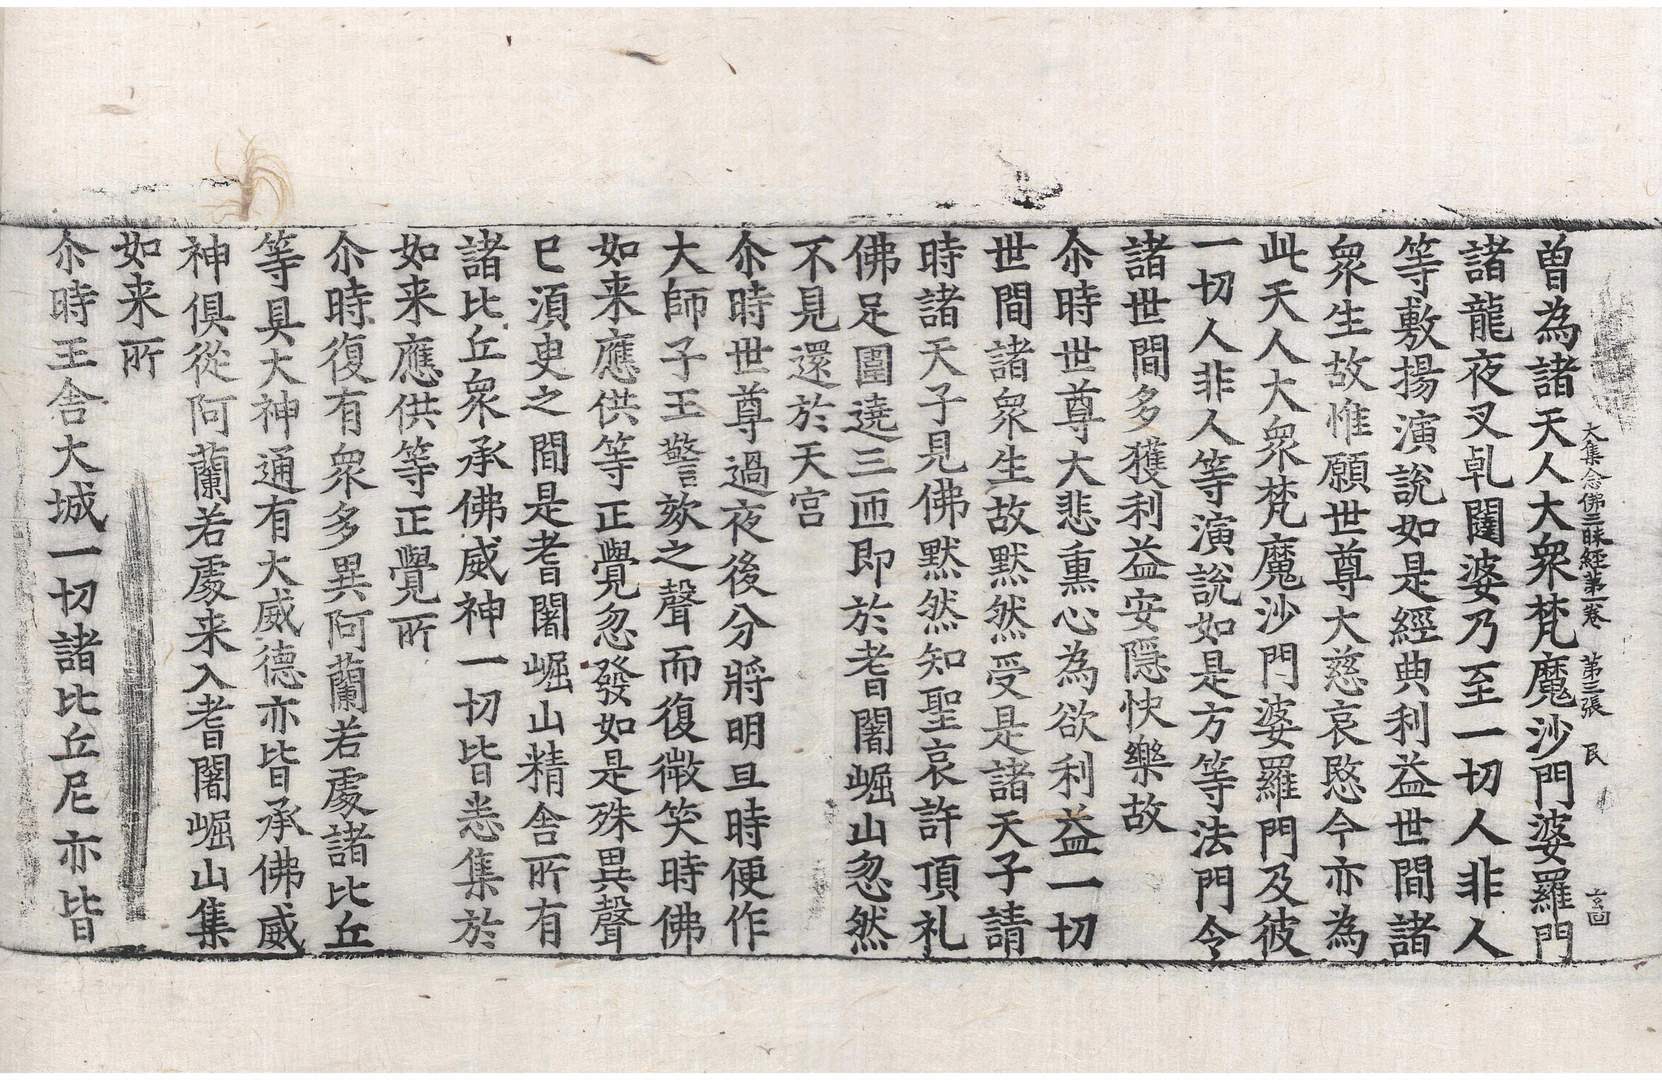 大集念佛三昧經第一卷　第三張　民
曾為諸天人大衆梵魔沙門婆羅門
諸龍夜叉乹闥婆乃至一切人非人
等敷揚演說如是經典利益世間諸
衆生故惟願世尊大慈哀愍今亦為
此天人大衆梵魔沙門婆羅門及彼
一切人非人等演說如是方等法門令
諸世間多獲利益安隱快樂故
尒時世尊大悲熏心為欲利益一切
世間諸衆生故默然受是諸天子請
時諸天子見佛默然知聖哀許頂礼
佛足圍遶三匝即於耆闍崛山忽然
不見還於天宮
尒時世尊過夜後分將明旦時便作
大師子王謦欬之聲而復微笑時佛
如来應供等正覺忽發如是殊異聲
已須臾之間是耆闍崛山精舍所有
諸比丘衆承佛威神一切皆悉集於
如来應供等正覺所
尒時復有衆多異阿蘭若處諸比丘
等具大神通有大威德亦皆承佛威
神俱從阿蘭若處来入耆闍崛山集
如来所
尒時王舍大城一切諸比丘尼亦皆